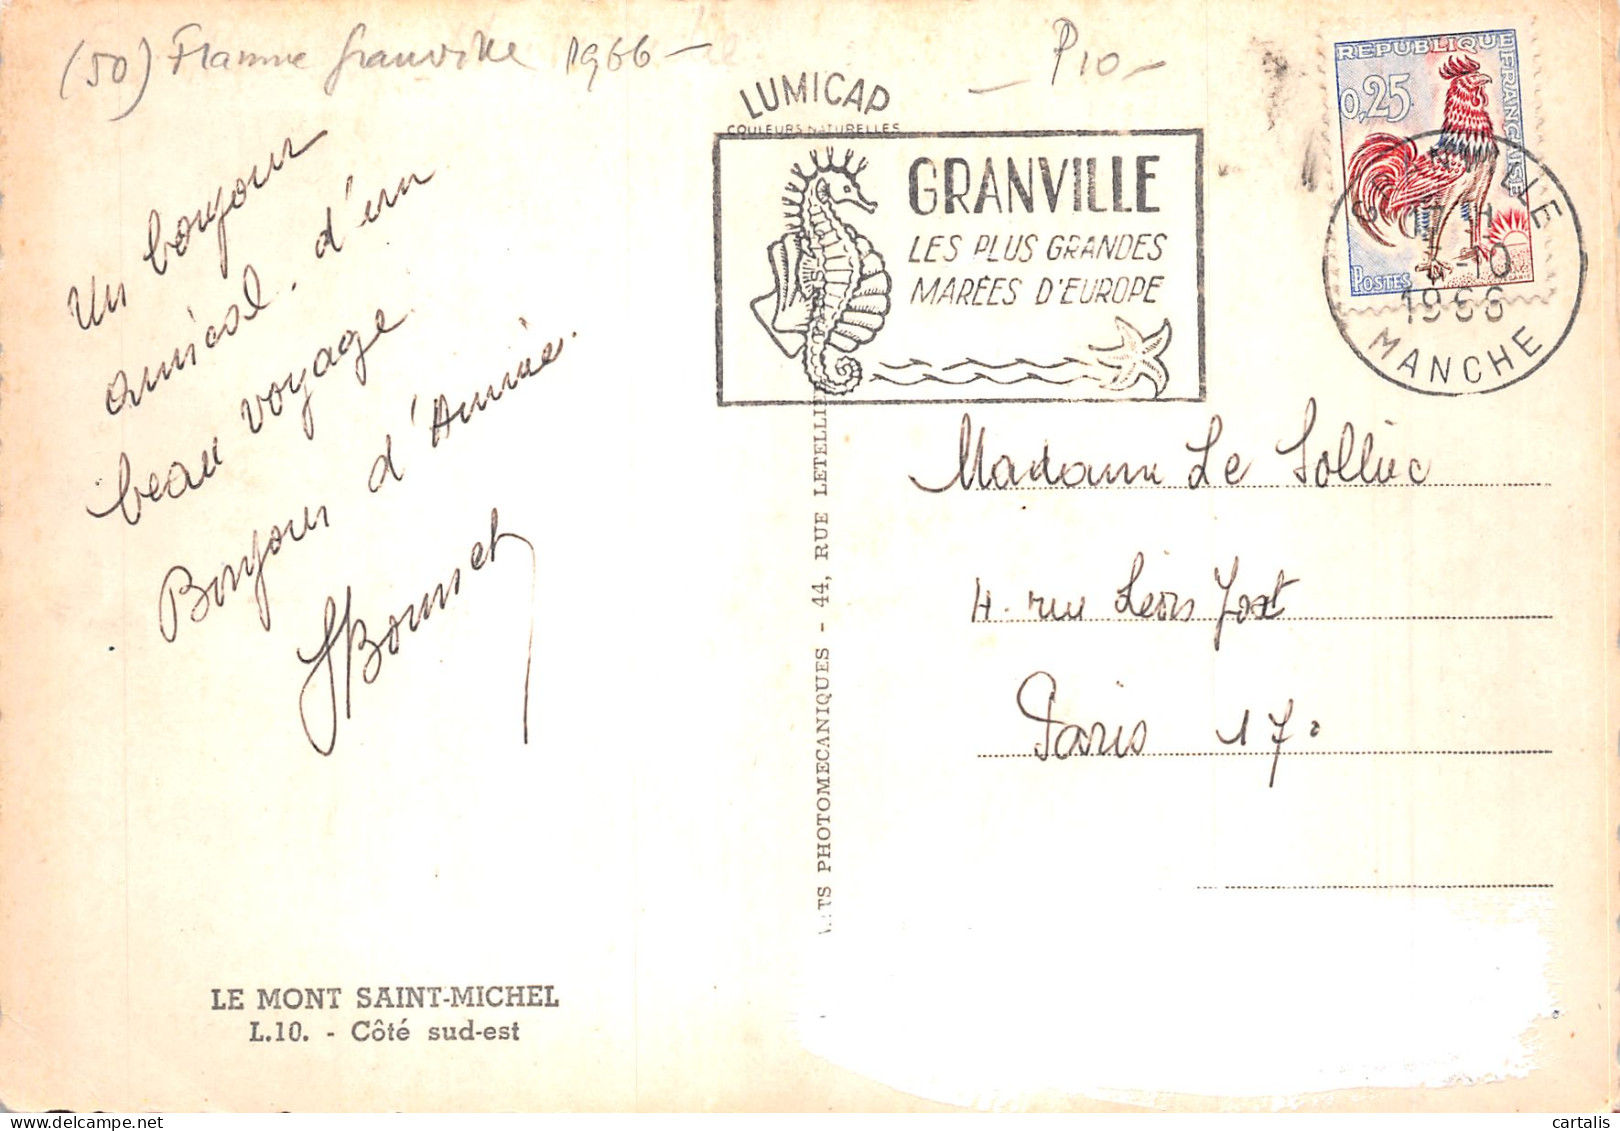 (50) Flamme Granville 1966 -
- P10 -
LUMICAP
COULEURS NATURELLES
GRANVILLE
LES PLUS GRANDES
MARÉES D'EUROPE
REPUBLIQUE FRANÇAISE
0,25
POSTES
GRANVILLE
17 H
-10
1966
MANCHE
Un bonjour
amical. d'un
beau voyage.
Bonjour d'Annie.
Madame Le
4. rue Léon Jost
Paris 17e
ARTS PHOTOMECANIQUES - 44, RUE LETELLIER PARIS
LE MONT SAINT-MICHEL
L.10. - Côté sud-est
cartalis